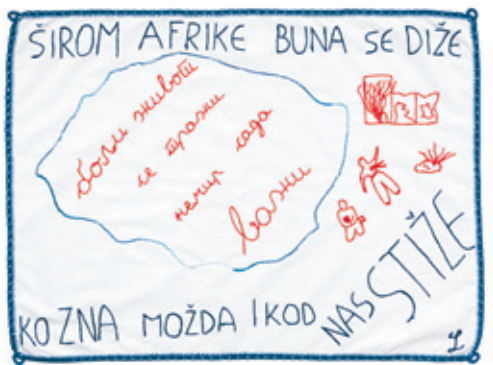 ŠIROM AFRIKE BUNA SE DIŽE
бољи животи
се тражи сада
немир важи
KO ZNA MOŽDA I KOD NAS STIŽE